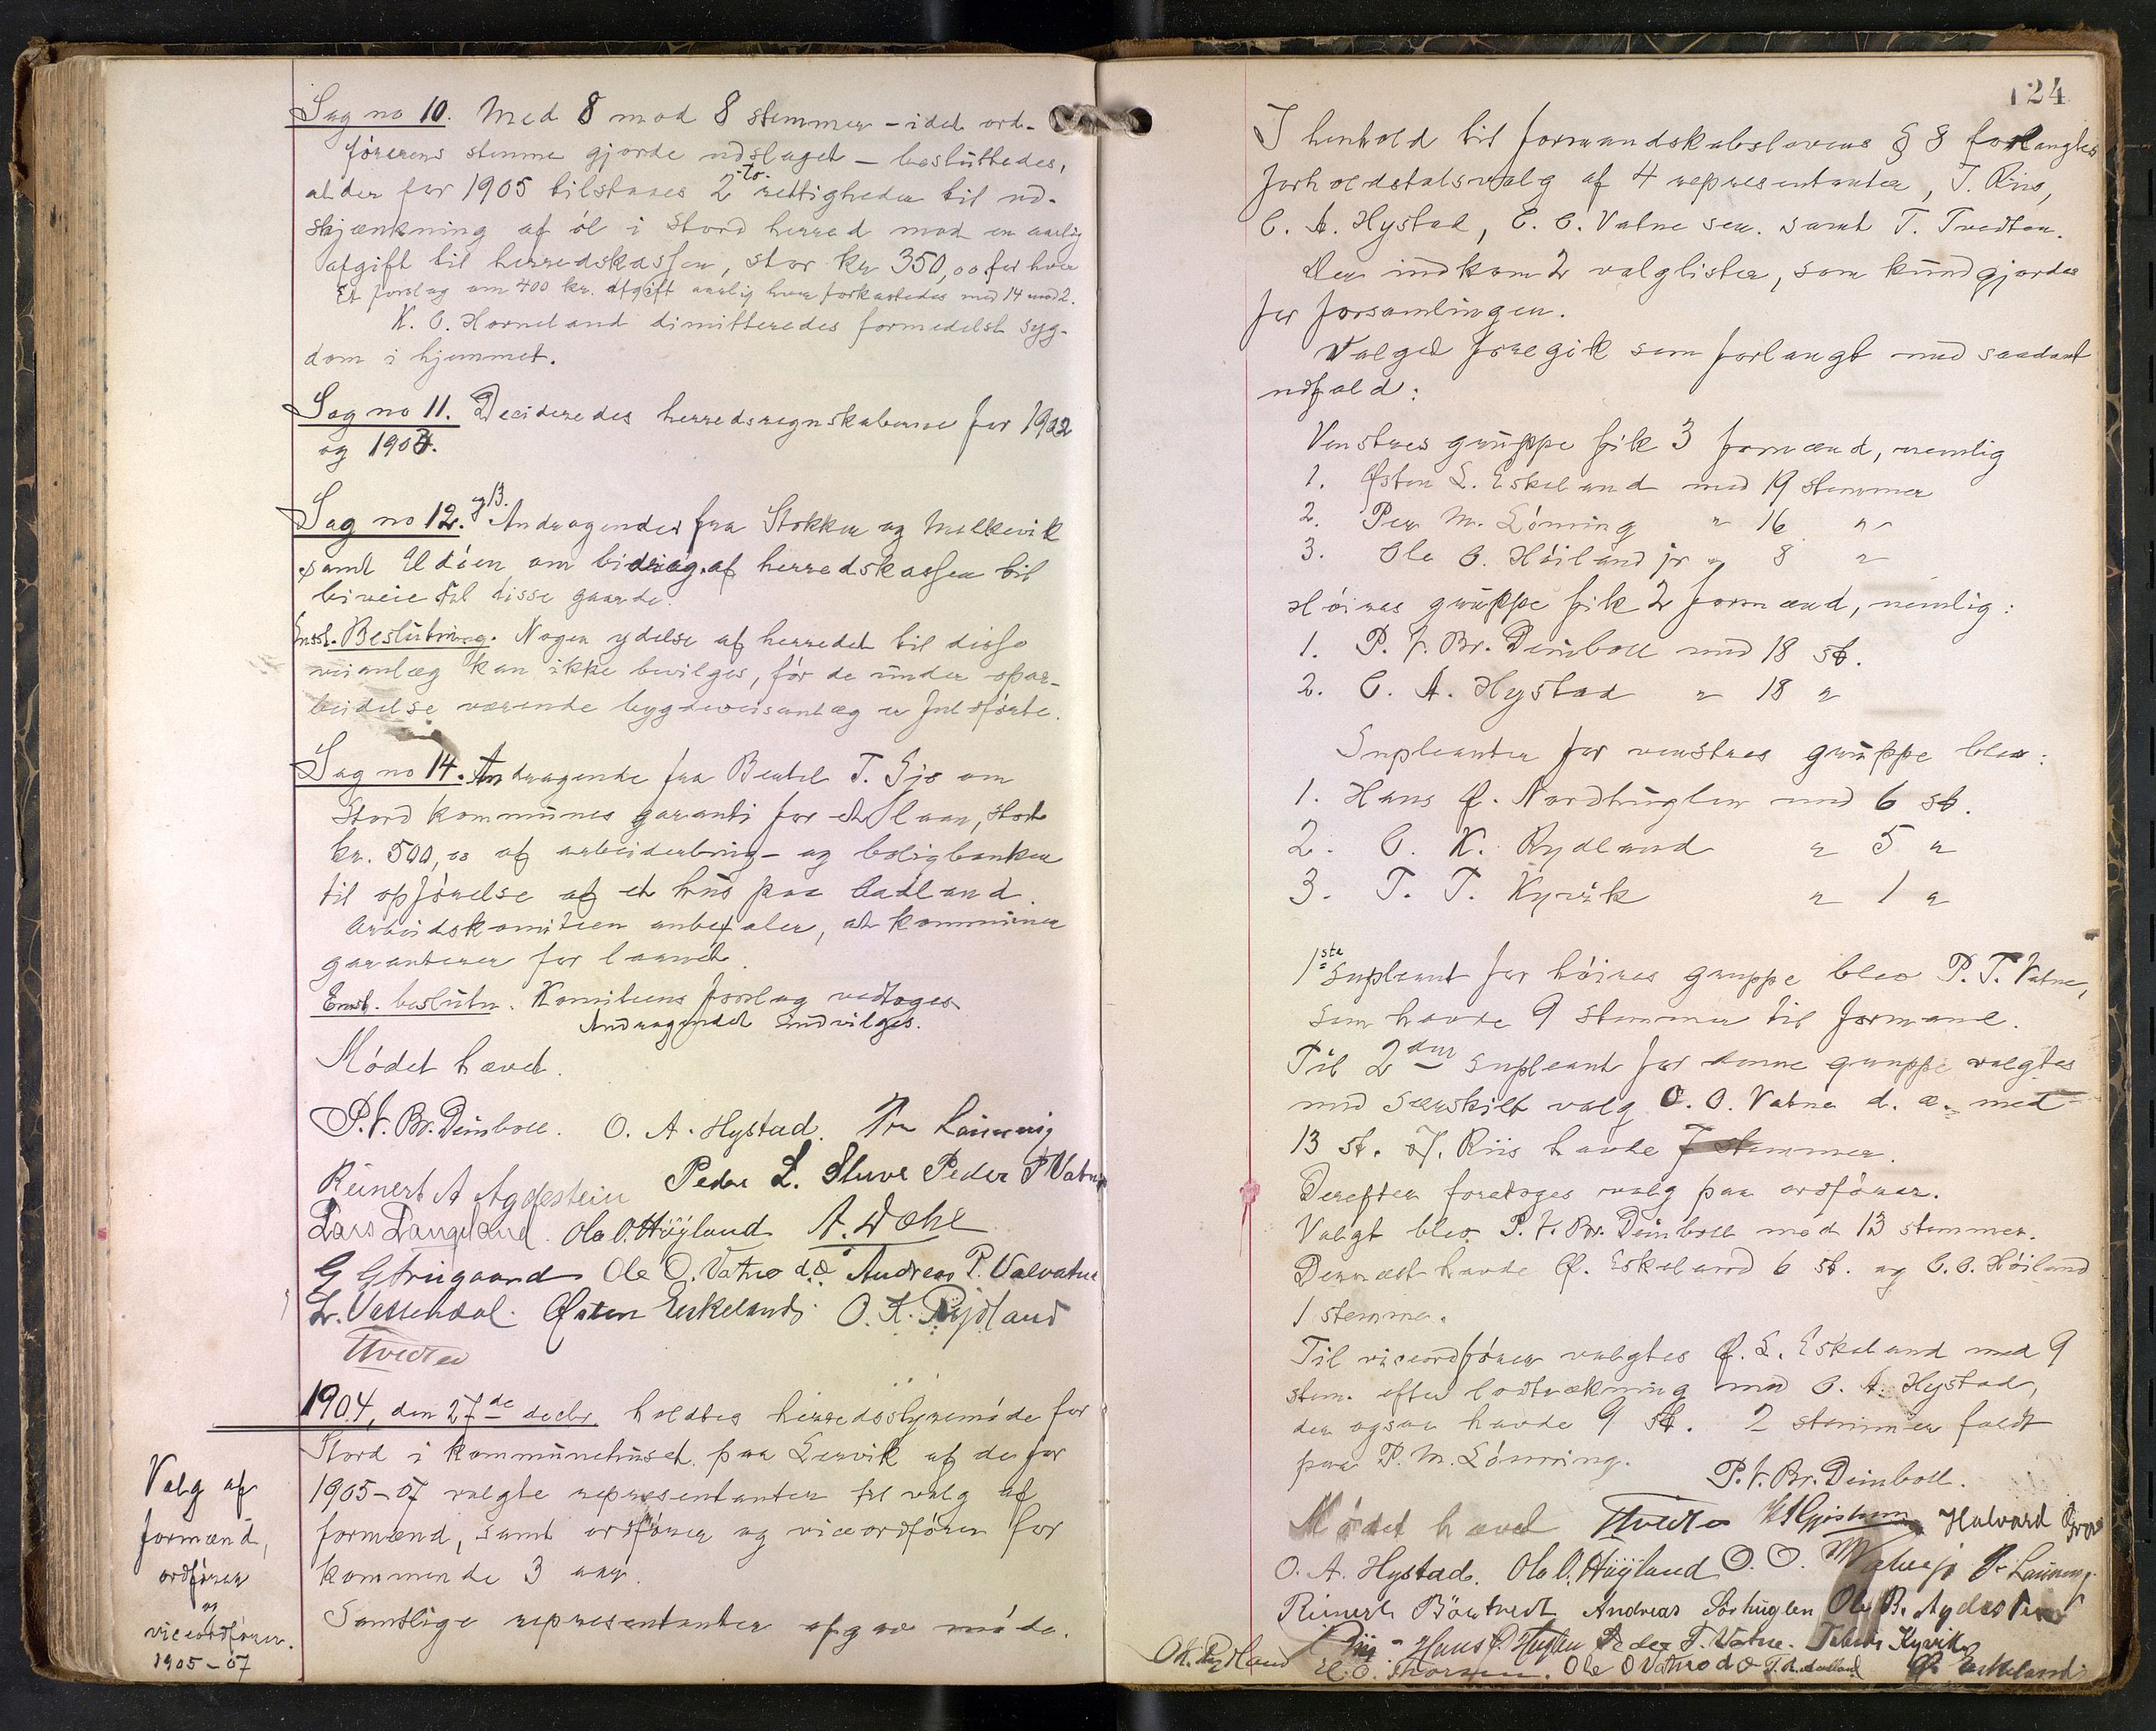 Sag no 10. Med 8 mod 8 stemmer - idet ord-
förerens stemme gjorde udslaget - besluttedes,
at der for 1905 tilstaaes 2-to- rettigheder til ud-
skjænkning af öl i Stord herred mod en aarlig
afgift til herredskassen, stor kr 350,00 for hver
Et forslag om 400 kr. afgift aarlig hver forkastedes med 14 mod 2.
K. O. Horneland dimitteredes formedelst syg-
dom i hjemmet.
Sag no 11. Decideredes herredsregnskaberne for 1902
og 1903.
Sag no 12. og 13. Andragender fra Stokken og Melkevik
samt Uldöen om bidrag af herredskassen til
biveie til disse gaarde.
Enst. Beslutning. Nogen ydelse af herredet til disse
veianlæg kan ikke bevilges, för de under opar-
beidelse værende bygdeveisanlæg er fuldförte.
Sag no 14. Andragende fra Bertel T. Gjo om
Stord kommunes garanti for et laan, stort
kr. 500,00 af arbeiderbrug- og boligbanken
til opförelse af et hus paa Aadland.
Arbeidskomiteen anbefaler, at kommunen
garanterer for laanet.
Enst. beslutn. Komiteens forslag vedtoges
Andragendet indvilges.
Mödet hævet.
P. V. Br. Deinboll. O. A. Hystad. Per Lönning
Reinert A Agdestein Peder L. Stuve Peder T Vatne
Lars Langeland. Ola O. Höyland A. Dahl
G Grougaard Ole O. Vatne d.æ. Andreas P. Valvatne
L. Vestendal. Østen Eskeland. O. K. Rydland
Tvedten
1904, den 27de decbr. holdtes herredsstyremöde for
Stord i kommunehuset paa Lervik af de for
1905-07 valgte representanter til valg af
formænd, samt ordförer og viceordförer for
kommende 3 aar.
Samtlige representanter afgav möde.
Valg af
formænd,
ordförer
og
viceordförer.
1905-07
124
I henhold til formandskabslovens § 8 forlangtes
forholdstalsvalg af 4 representanter, J. Riis,
O. A. Hystad, O. O. Vatne sen. samt T. Tvedten.
Der indkom 2 valglister, som kundgjordes
for forsamlingen.
Valget foregik som forlangt med saadant
udfald:
Venstres gruppe fik 3 formænd, nemlig
1. Østen L. Eskeland med 19 stemmer
2. Per M. Lönning " 16 "
3. Ole O. Höiland jr " 8 "
Höires gruppe fik 2 formænd, nemlig:
1. P. V. Br. Deinboll med 18 st.
2. O. A. Hystad " 18 "
Supleanter for venstres gruppe blev:
1. Hans Ø. Nordhuglen med 6 st.
2. O. K. Rydland " 5 "
3. T. T. Kyvik " 1 "
1ste supleant for höires gruppe blev P. T. Vatne,
som havde 9 stemmer til formand.
Til 2den supleant for denne gruppe valgtes
med særskilt valg O. O. Vatne d. æ. med
13 st. J. Riis havde 7 stemmer.
Derefter foretoges valg paa ordförer.
Valgt blev P. V. Br. Deinboll med 13 stemmer.
Dernæst havde Ø. Eskeland 6 st. og O. O. Höiland
1 stemme.
Til viceordförer valgtes Ø. L. Eskeland med 9
stem. efter lodtrækning med O. A. Hystad,
der ogsaa havde 9 st. 2 stemmer faldt
paa P. M. Lönning.
P. V. Br. Deinboll.
Mödet hævet Tvedten Halvard
O. A. Hystad. Ola O. Höyland O. O. Vatne jr P. Lönning.
Reinert Börtvedt Andreas Sörhuglen Ole B. Agdestein
Riis - Hans Ø. Huglen Peder T. Vatne. Kyvik
OK. Rydland O. Thorsen. Ole O Vatne d æ T. A. Aadland Ø. Eskeland